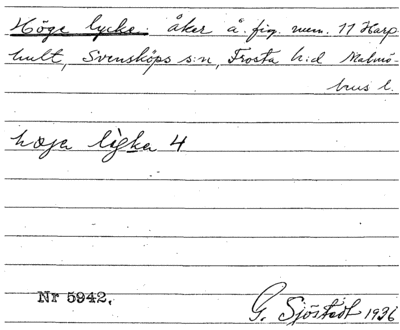 Höge lycke: åker å fig. num. 11 Harp-
hult, Svensköps s:n, Frosta h:d Malmö-
hus l.
hɷgɐ lykɐ 4
Nr 5942.
G. Sjöstedt 1936